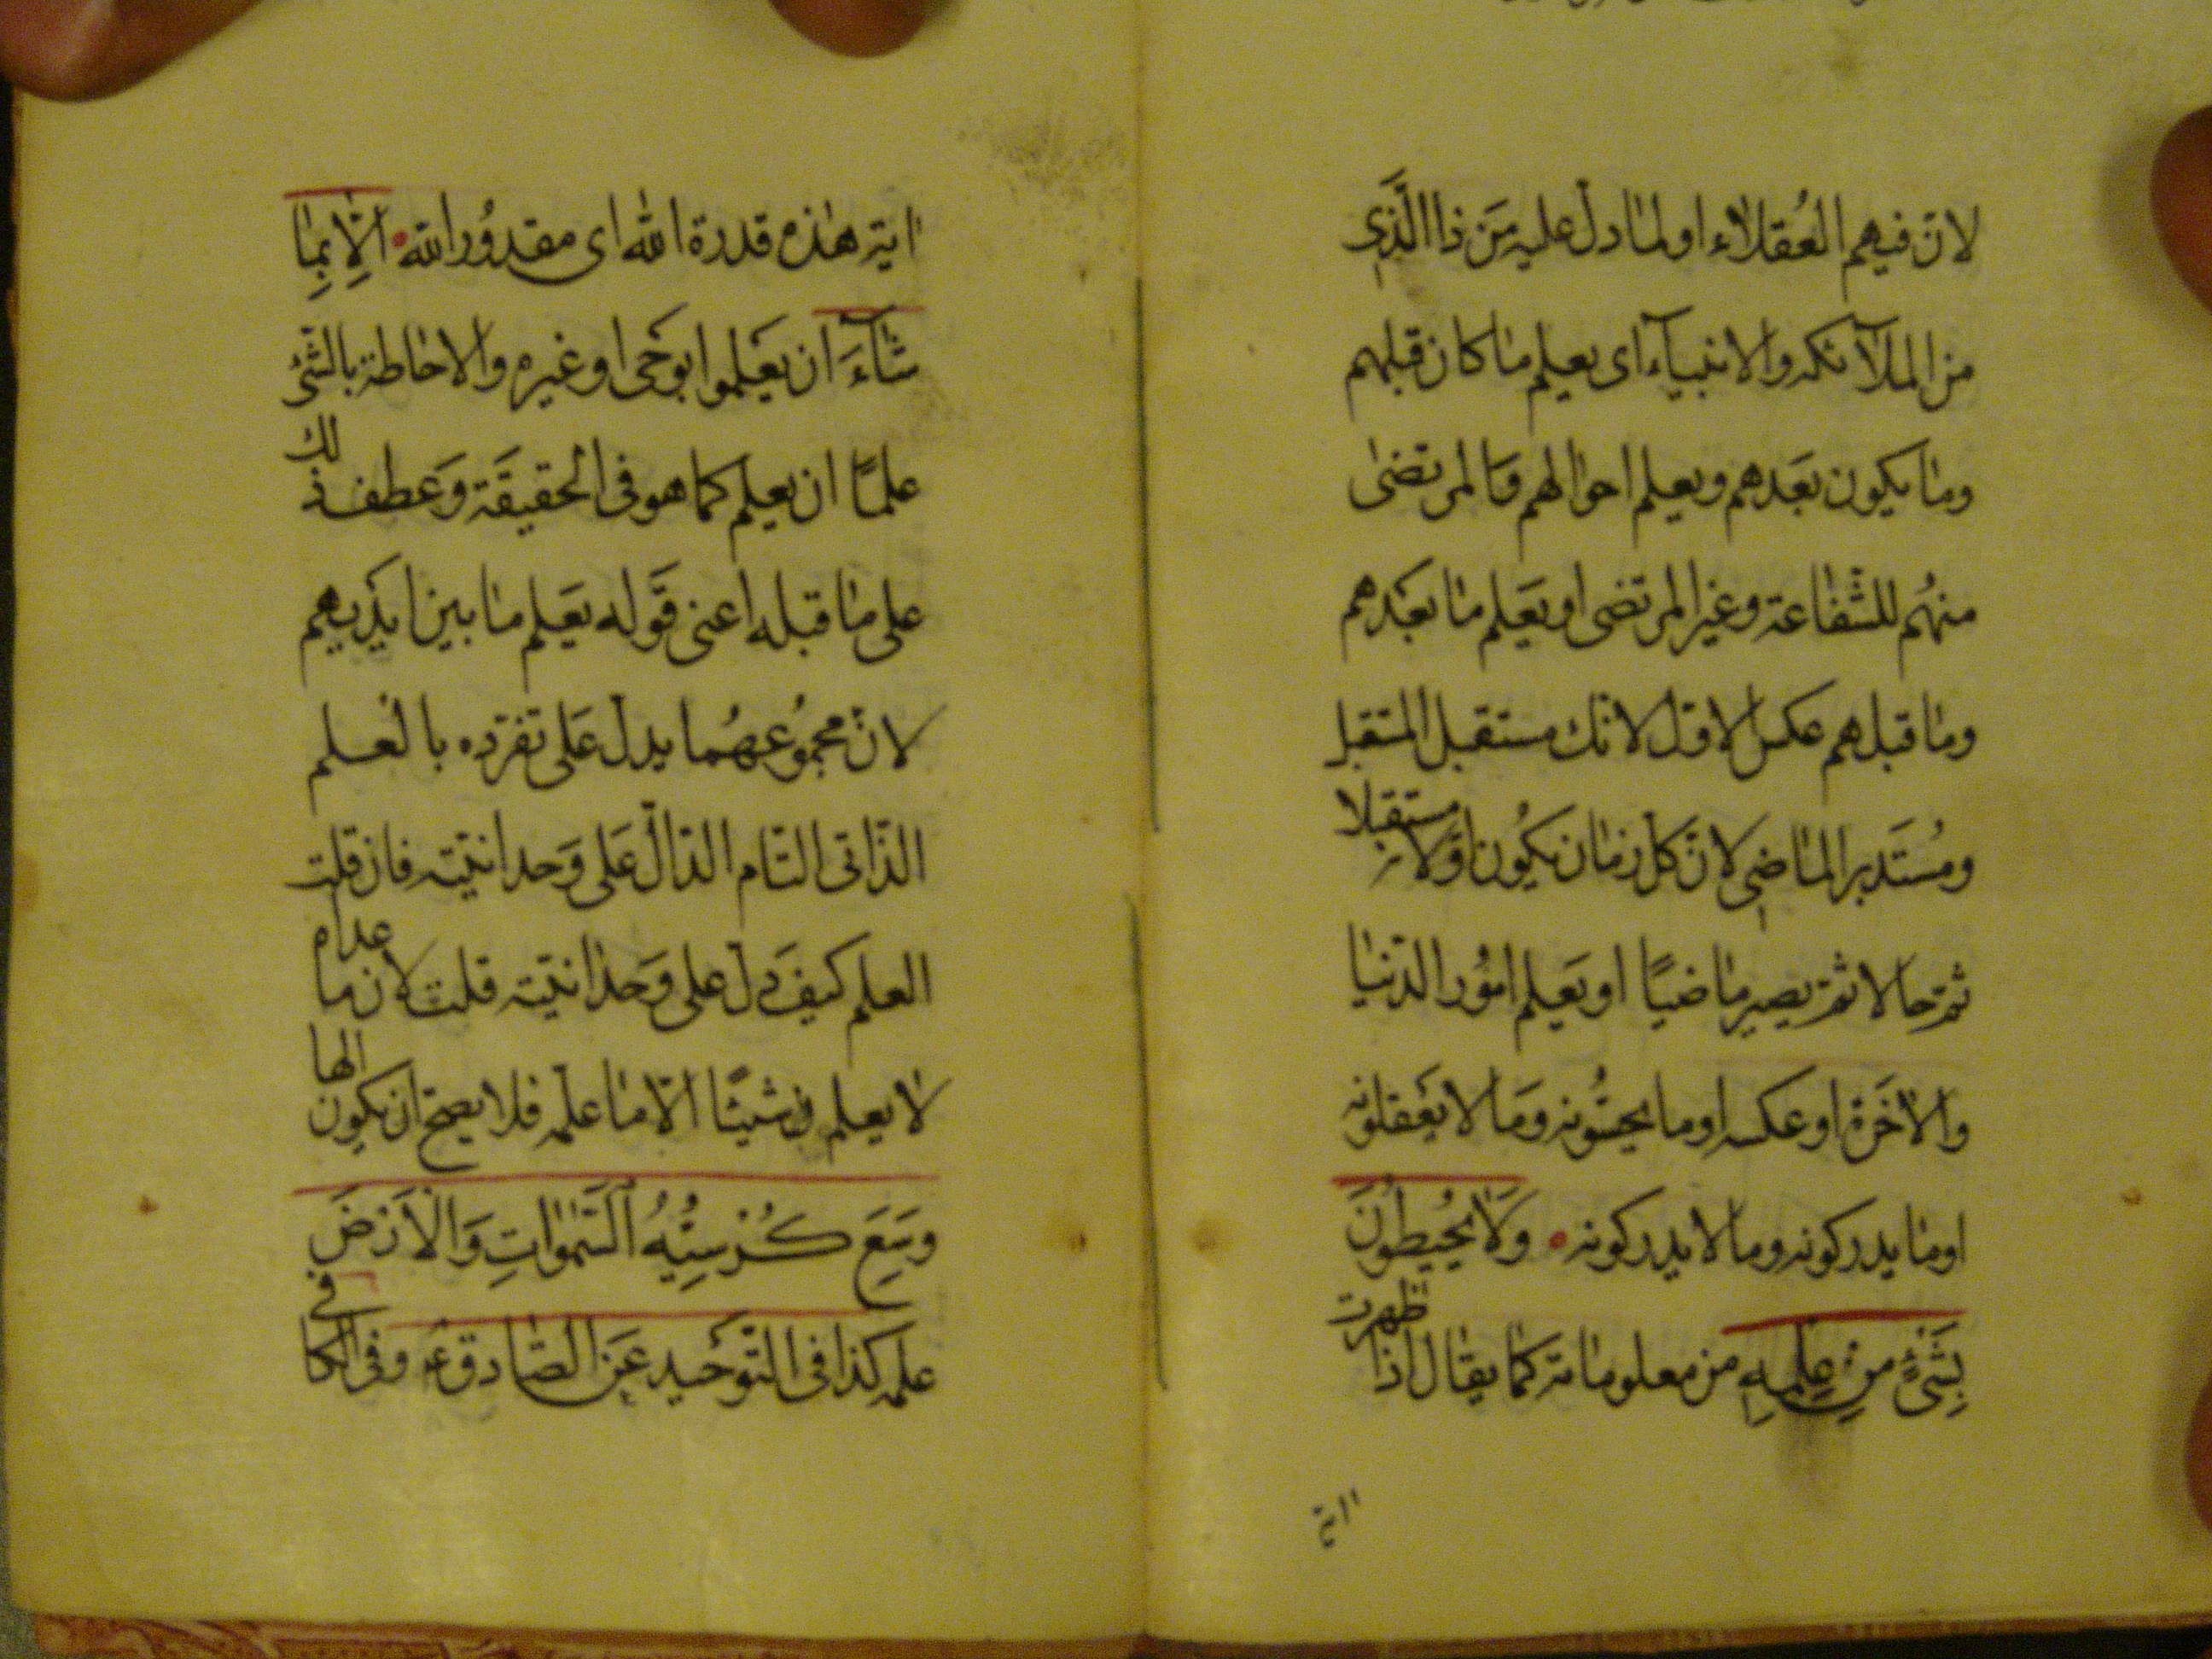 لانّ فيهم العُقلاء او لما دلّ عليه مَن ذا الَّذي
من الملآئكه والانبيآء اى يعلم ما كان قبلهم
وما يكون بعَدهم ويعلم احوالهم فالمرتضى
منهُم للشّفاعة وغير المرتضى او يعَلم ما بعَدهم
وما قبلهم عكس الاوّل لانّك مستقبل المتقبل
ومُستَدبر الماضي لانّ كلّ زمان يكُون اوّلا مستقبلا
ثمّ حالا ثمّ يصير ماضيًا او يعَلم امُور الدّنيا
والاخَرة او عكسه او ما يحسّونه ومَا لا يعَقلونه
او ما يدركونه وما لا يدركونه ولَا يُحيطُونَ
بِشَئٍ مِن عِلمِهِ من معلوماته كما يقال اذا ظهرت
اية
اية هذه قدرة الله اى مقدُور الله الّا بِمٰا
شٰآءَ ان يعَلموا بوحَى او غيره والاحاطة بالشّئ
علمًا ان يعلم كما هو فى الحقيقَة وعَطف ذلك
على ما قبله اعنى قَوله يعَلم ما بين ايَديهم
لانّ مجموُعهُما يدل عَلى تفرّده بالعُلم
الذّاتى التّام الدّالّ عَلى وَحدانيّته فان قلت
العلم كيفَ دلّ على وَحدانيّته قلت لان ما عداه
لا يعلم شيئًا الّا ما علّمه فلا يصحّ ان يكون الها
وَسِعَ كُرْسِيُّهُ السَّمٰوٰاتِ وَالْاَرْضَ
علمه كذا فى التّوحَيد عَن الصّادق ع وفى الكافى